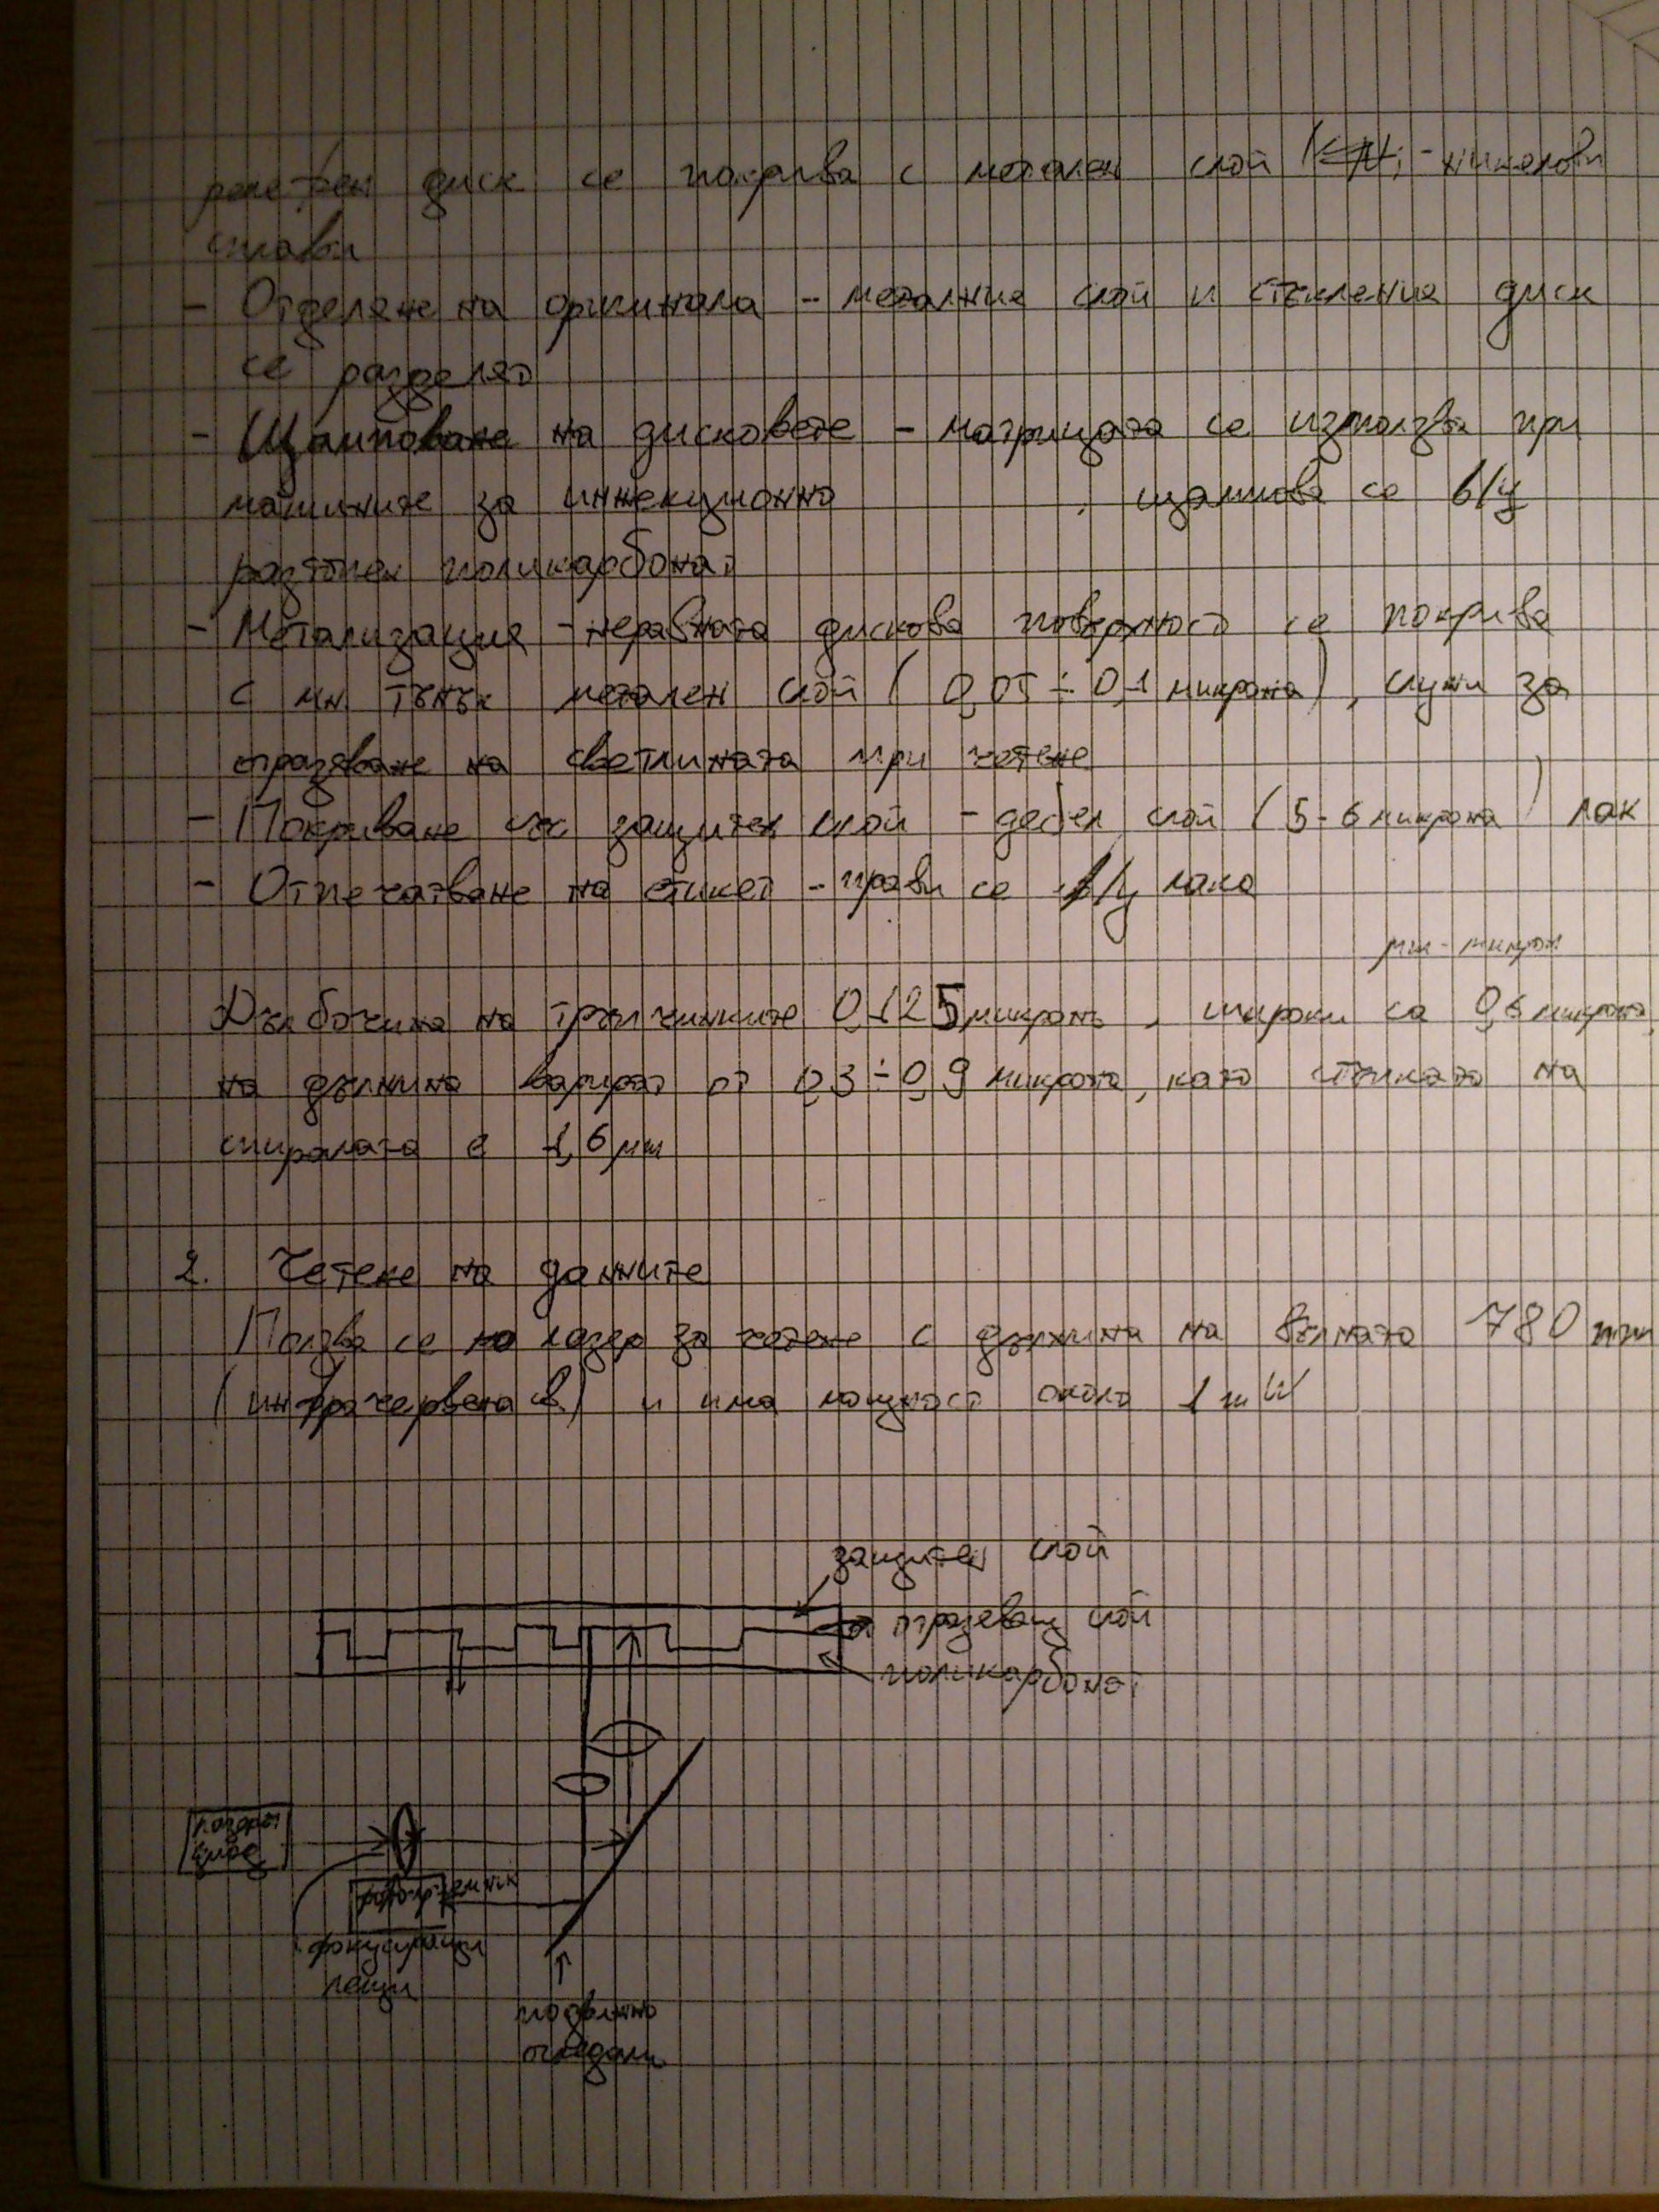 релефен диск се покрива с метален слой - никелови
сплави
- Отделяне на оригинала - металния слой и стъкления диск
се разделят
- Щамповане на дисковете - матрицата се използва при
машините за инжекционно , щампова се в/у
разтопен поликарбонат
- Метализация - неравната дискова повърхност се покрива
с мн тънък метален слой (0,05 ÷ 0,1 микрона), служи за
отразяване на светлината при четене
- Покриване със защитен слой - дебел слой (5-6 микрона) лак
- Отпечатване на етикет - прави се в/у лака
μm - микрон
Дълбочина на тръпчинките 0,125 микрона, широки са 0,6 микрона,
на дължина варират от 0,3 ÷ 0,9 микрона, като стъпката на
спиралата е 1,6 μm
2. Четене на данните
Ползва се лазер за четене с дължина на вълната 780 nm
(инфрачервена св) и има мощност около 1 mW
защитен слой
отразяващ слой
поликарбонат
лазерен
диод
фокусиращи
лещи
подвижно
огледало